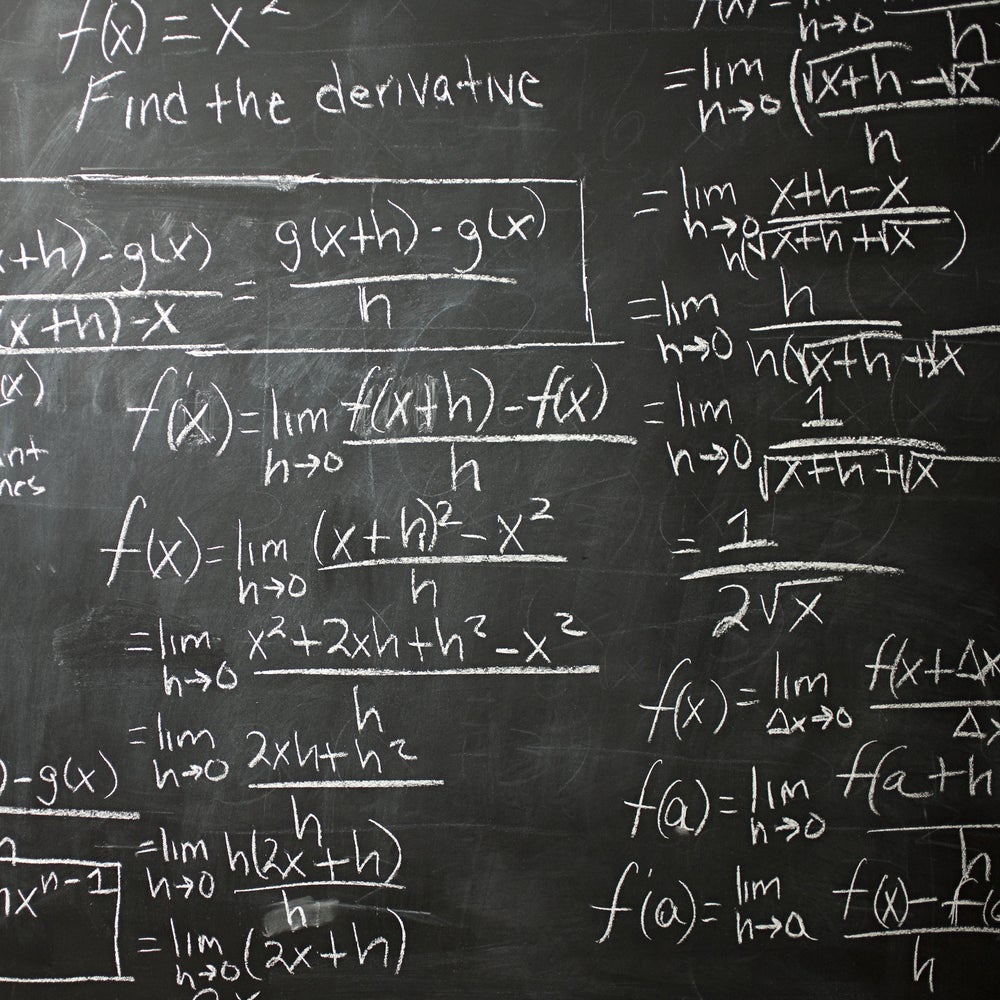 f(x) = x²
Find the derivative
x+h) - g(x) / (x+h) - x = g(x+h) - g(x) / h
(x)
f'(x) = lim h→0 f(x+h) - f(x) / h
f(x) = lim h→0 (x+h)² - x² / h
= lim h→0 x² + 2xh + h² - x² / h
= lim h→0 2xh + h² / h
) - g(x)
= lim h→0 h(2x + h) / h
x^(n-1)
= lim h→0 (2x + h)
h→0 h
= lim h→0 (√x+h - √x / h
= lim h→0 x+h-x / h(√x+h + √x)
= lim h→0 h / h(√x+h + √x
= lim h→0 1 / √x+h + √x
= 1 / 2√x
f(x) = lim Δx→0 f(x+Δx / Δx
f(a) = lim h→0 f(a+h / h
f'(a) = lim h→a f(x) - f(a / h